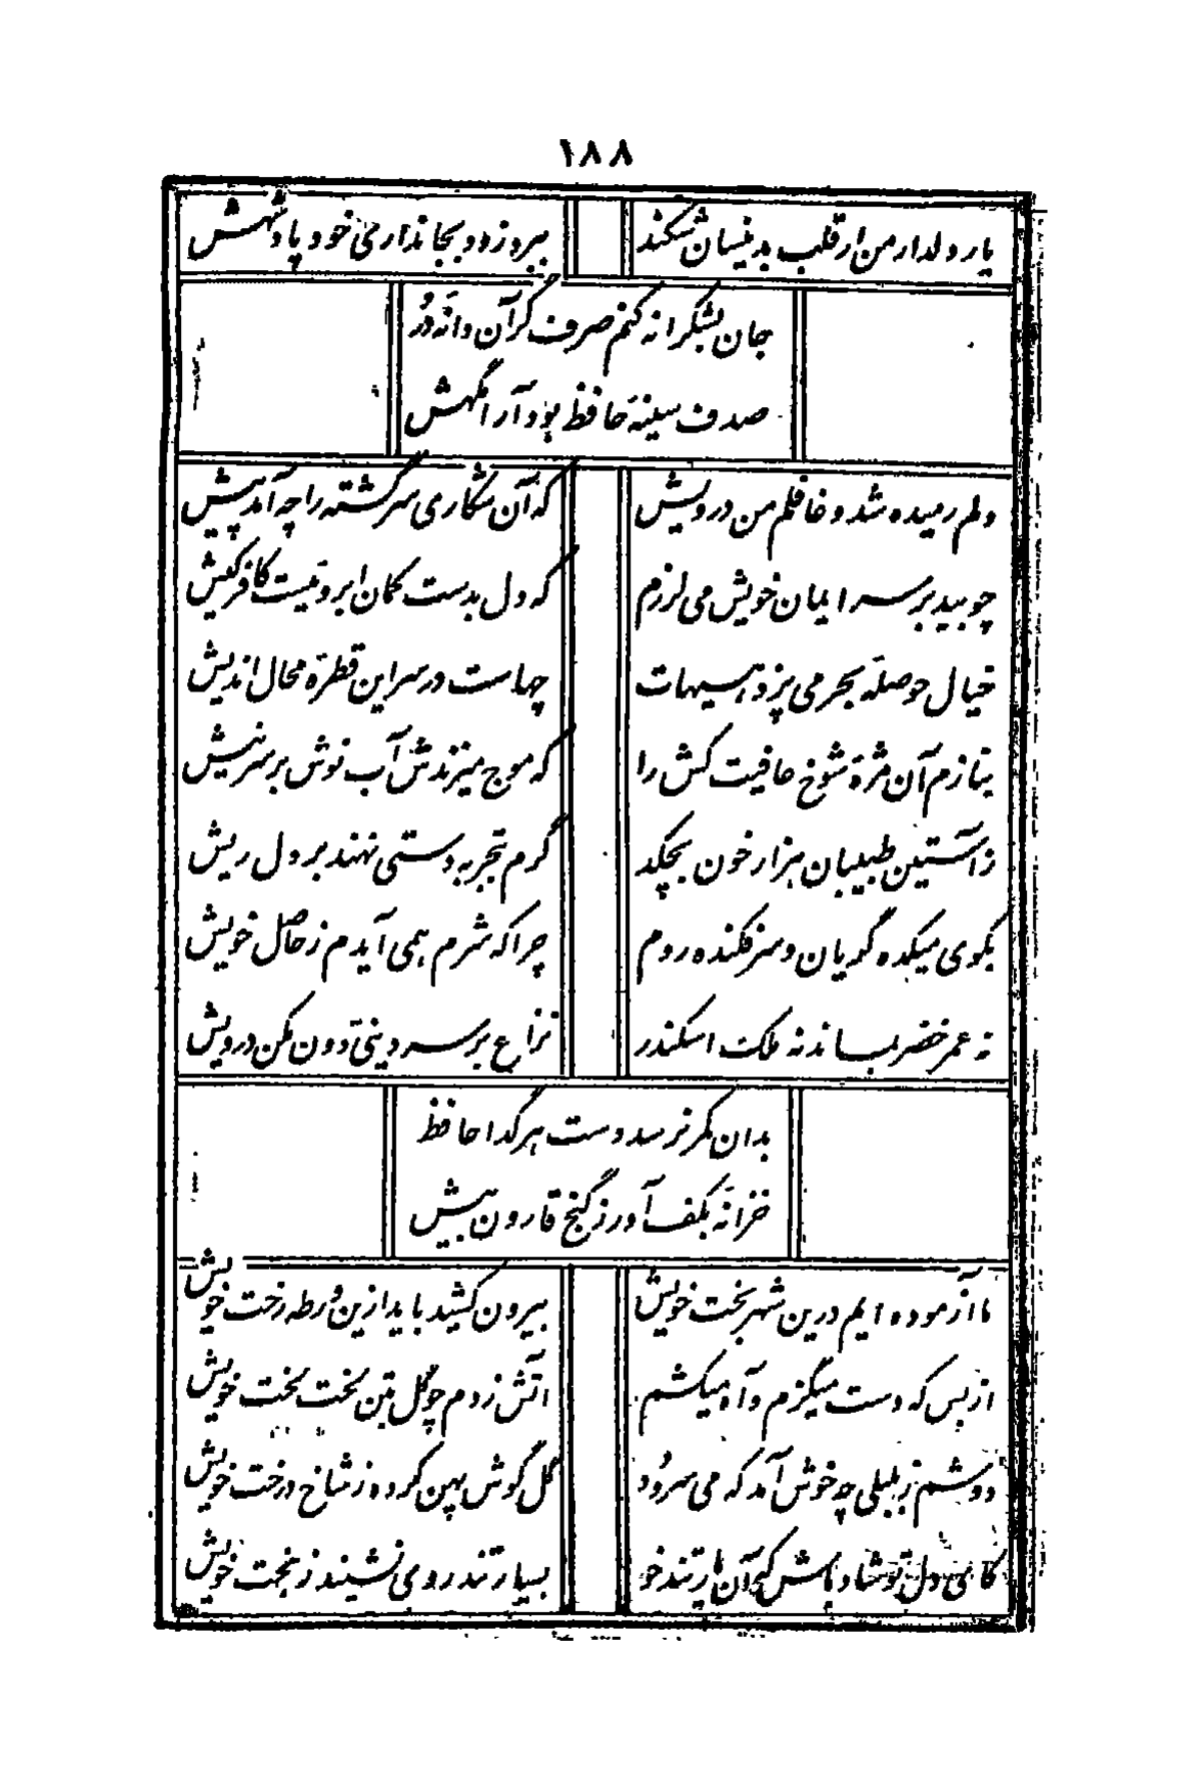 ۱۸۸
یار دلدار من ار قلب بدینسان شکند
ببرد زود بجانداری خود پادشهش
جان بشکرانه کنم صرف گر آن دانهٔ دُر
صدف سینهٔ حافظ بود آرامگهش
دلم رمیده شد و غافلم من درویش
که آن شکاری سرگشته را چه آمد پیش
چو بید بر سر ایمان خویش می لرزم
که دل بدست کمان ابروئیست کافرکیش
خیال حوصلهٔ بحر می پزد هیهات
چهاست در سر این قطرهٔ محال اندیش
بنازم آن مژهٔ شوخ عافیت کش را
که موج میزندش آب نوش بر سر نیش
ز آستین طبیبان هزار خون بچکد
گرم تجربه دستی نهند بر دل ریش
بکوی میکده گریان و سرفکنده روم
چرا که شرم همی آیدم ز حاصل خویش
نه عمر خضر بماند نه ملک اسکندر
نزاع بر سر دنیی دون مکن درویش
بدان کمر نرسد دست هر گدا حافظ
خزانهٔ بکف آور ز گنج قارون بیش
ما آزموده ایم درین شهر بخت خویش
بیرون کشید باید ازین ورطه رخت خویش
از بس که دست میگزم و آه میکشم
آتش زدم چو گل بتن لخت لخت خویش
دوشم ز بلبلی چه خوش آمد که می سرود
گل گوش پهن کرده ز شاخ درخت خویش
کای دل تو شاد باش که آن یار تند خو
بسیار تند روی نشیند ز بخت خویش